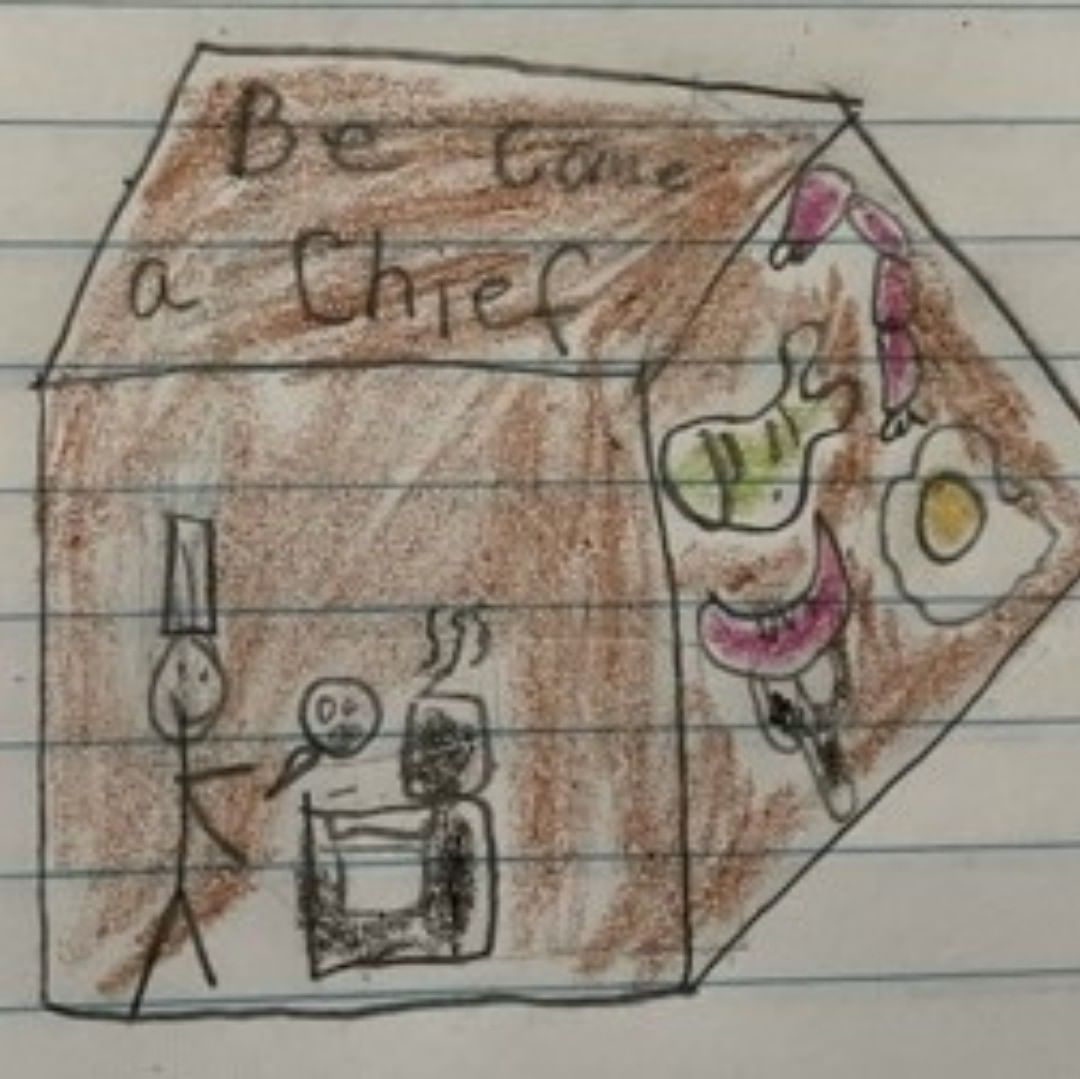 Be Come
a Chief